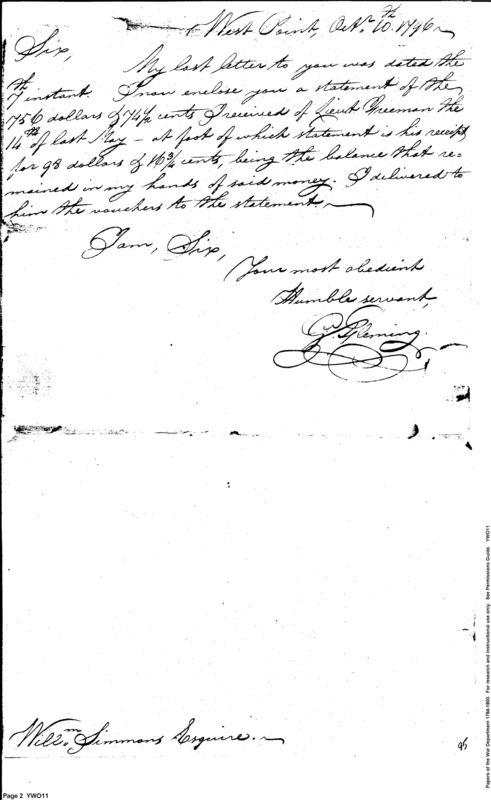 West Point, Octr. 10th. 1796
Sir,
My last letter to you was dated the
7th instant. I now enclose you a statement of the
756 dollars & 74 1/2 cents I received of Lieut Freeman the
14th of last May - at foot of which statement is his receipt
for 98 dollars & 16 3/4 cents, being the balance that re=
mained in my hands of said money. I delivered to
him the vouchers to the statement.
I am, Sir,
Your most obedient
Humble servant,
G. Fleming.
Willm. Simmons Esquire.
Page 2 YWO11
Papers of the War Department 1784-1800. For research and instructional use only. See Permissions Guide. YWO11